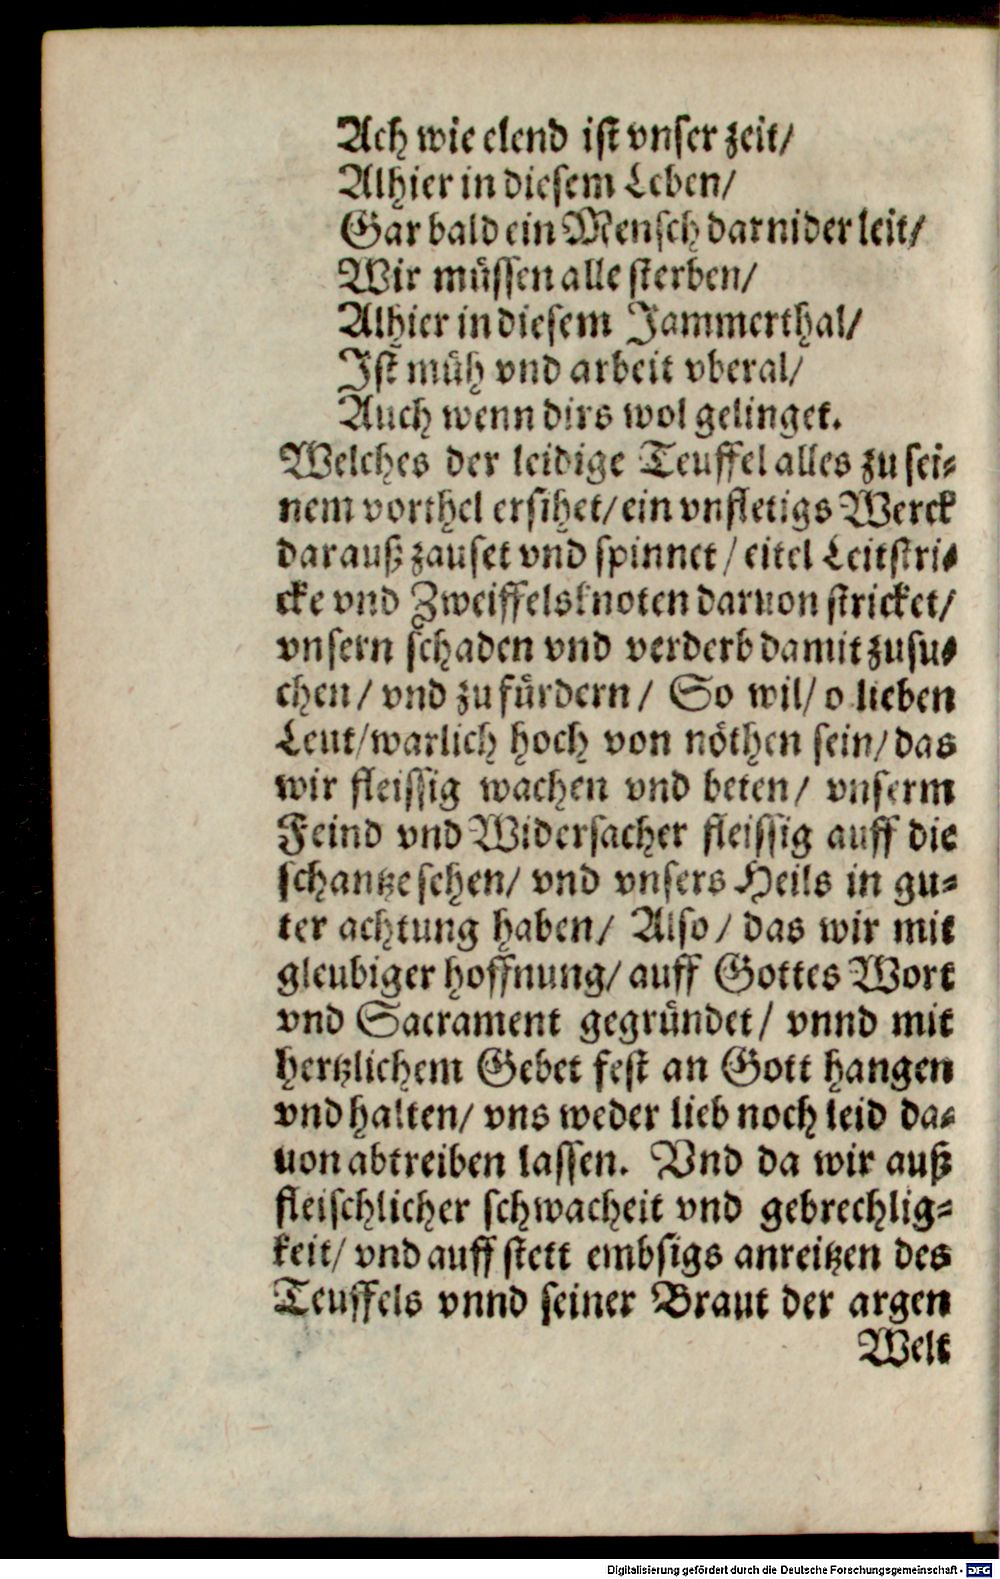 Ach wie elend ist vnser zeit/
Alhier in diesem Leben/
Gar bald ein Mensch darnider leit/
Wir müssen alle sterben/
Alhier in diesem Jammerthal/
Ist müh vnd arbeit vberal/
Auch wenn dirs wol gelinget.
Welches der leidige Teuffel alles zu sei-
nem vorthel ersihet/ ein vnfletigs Werck
darauß zauset vnd spinnet/ eitel Leitstri-
cke vnd Zweiffelsknoten daruon stricket/
vnsern schaden vnd verderb damit zusu-
chen/ vnd zu fürdern/ So wil/ o lieben
Leut/ warlich hoch von nöthen sein/ das
wir fleissig wachen vnd beten/ vnserm
Feind vnd Widersacher fleissig auff die
schantze sehen/ vnd vnsers Heils in gu-
ter achtung haben/ Also/ das wir mit
gleubiger hoffnung/ auff Gottes Wort
vnd Sacrament gegründet/ vnnd mit
hertzlichem Gebet fest an Gott hangen
vnd halten/ vns weder lieb noch leid da-
uon abtreiben lassen. Vnd da wir auß
fleischlicher schwacheit vnd gebrechlig-
keit/ vnd auff stett embsigs anreitzen des
Teuffels vnnd seiner Braut der argen
Welt
Digitalisierung gefördert durch die Deutsche Forschungsgemeinschaft - DFG